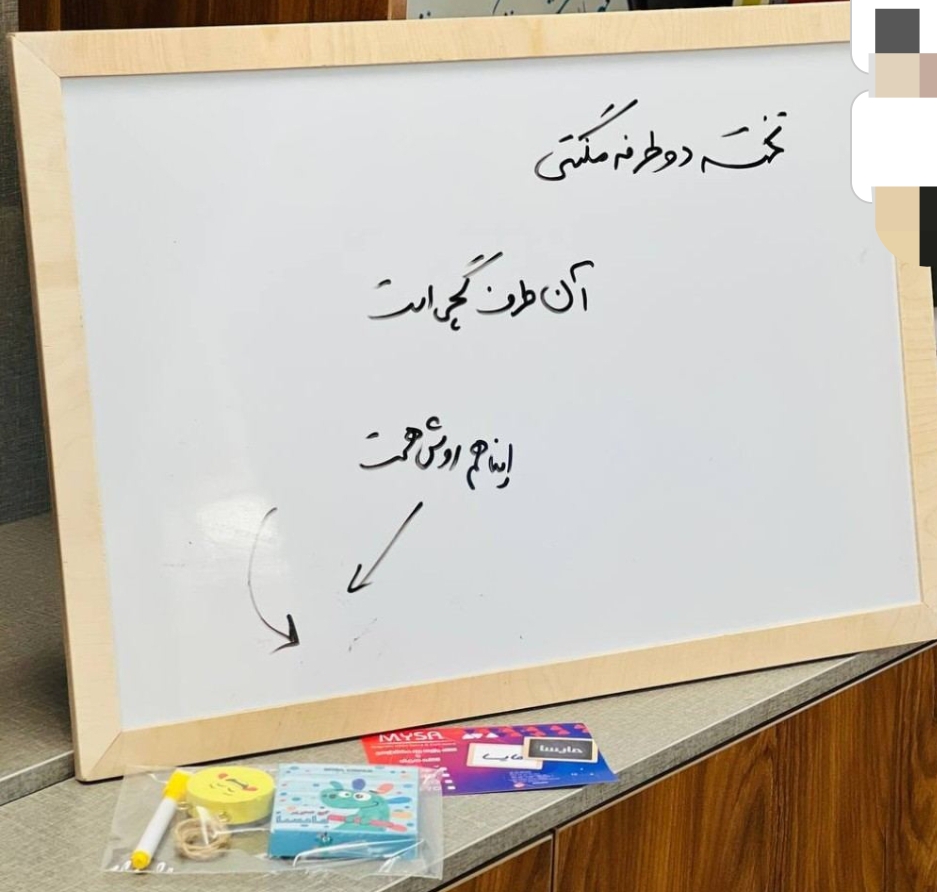 تخته دو طرفه مگنتی
آن طرف گچی است
اینا هم روش هست
MYSA
مایسا
مایسا